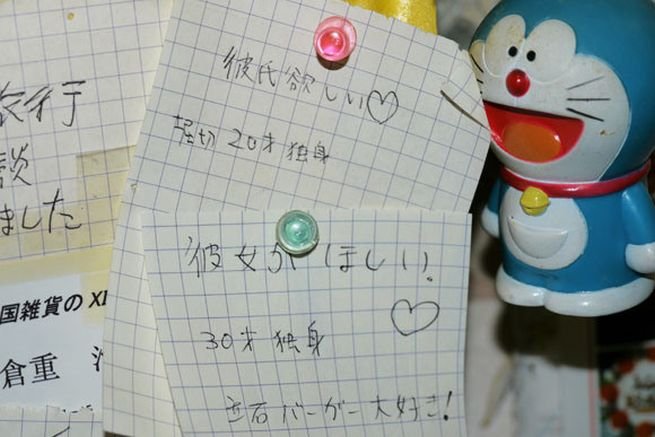 旅行
談
ました
国雑貨の XI
倉重
彼氏欲しい♡
堀切 20才 独身
彼女がほしい!
♡
30才 独身
立石バーガー大好き!